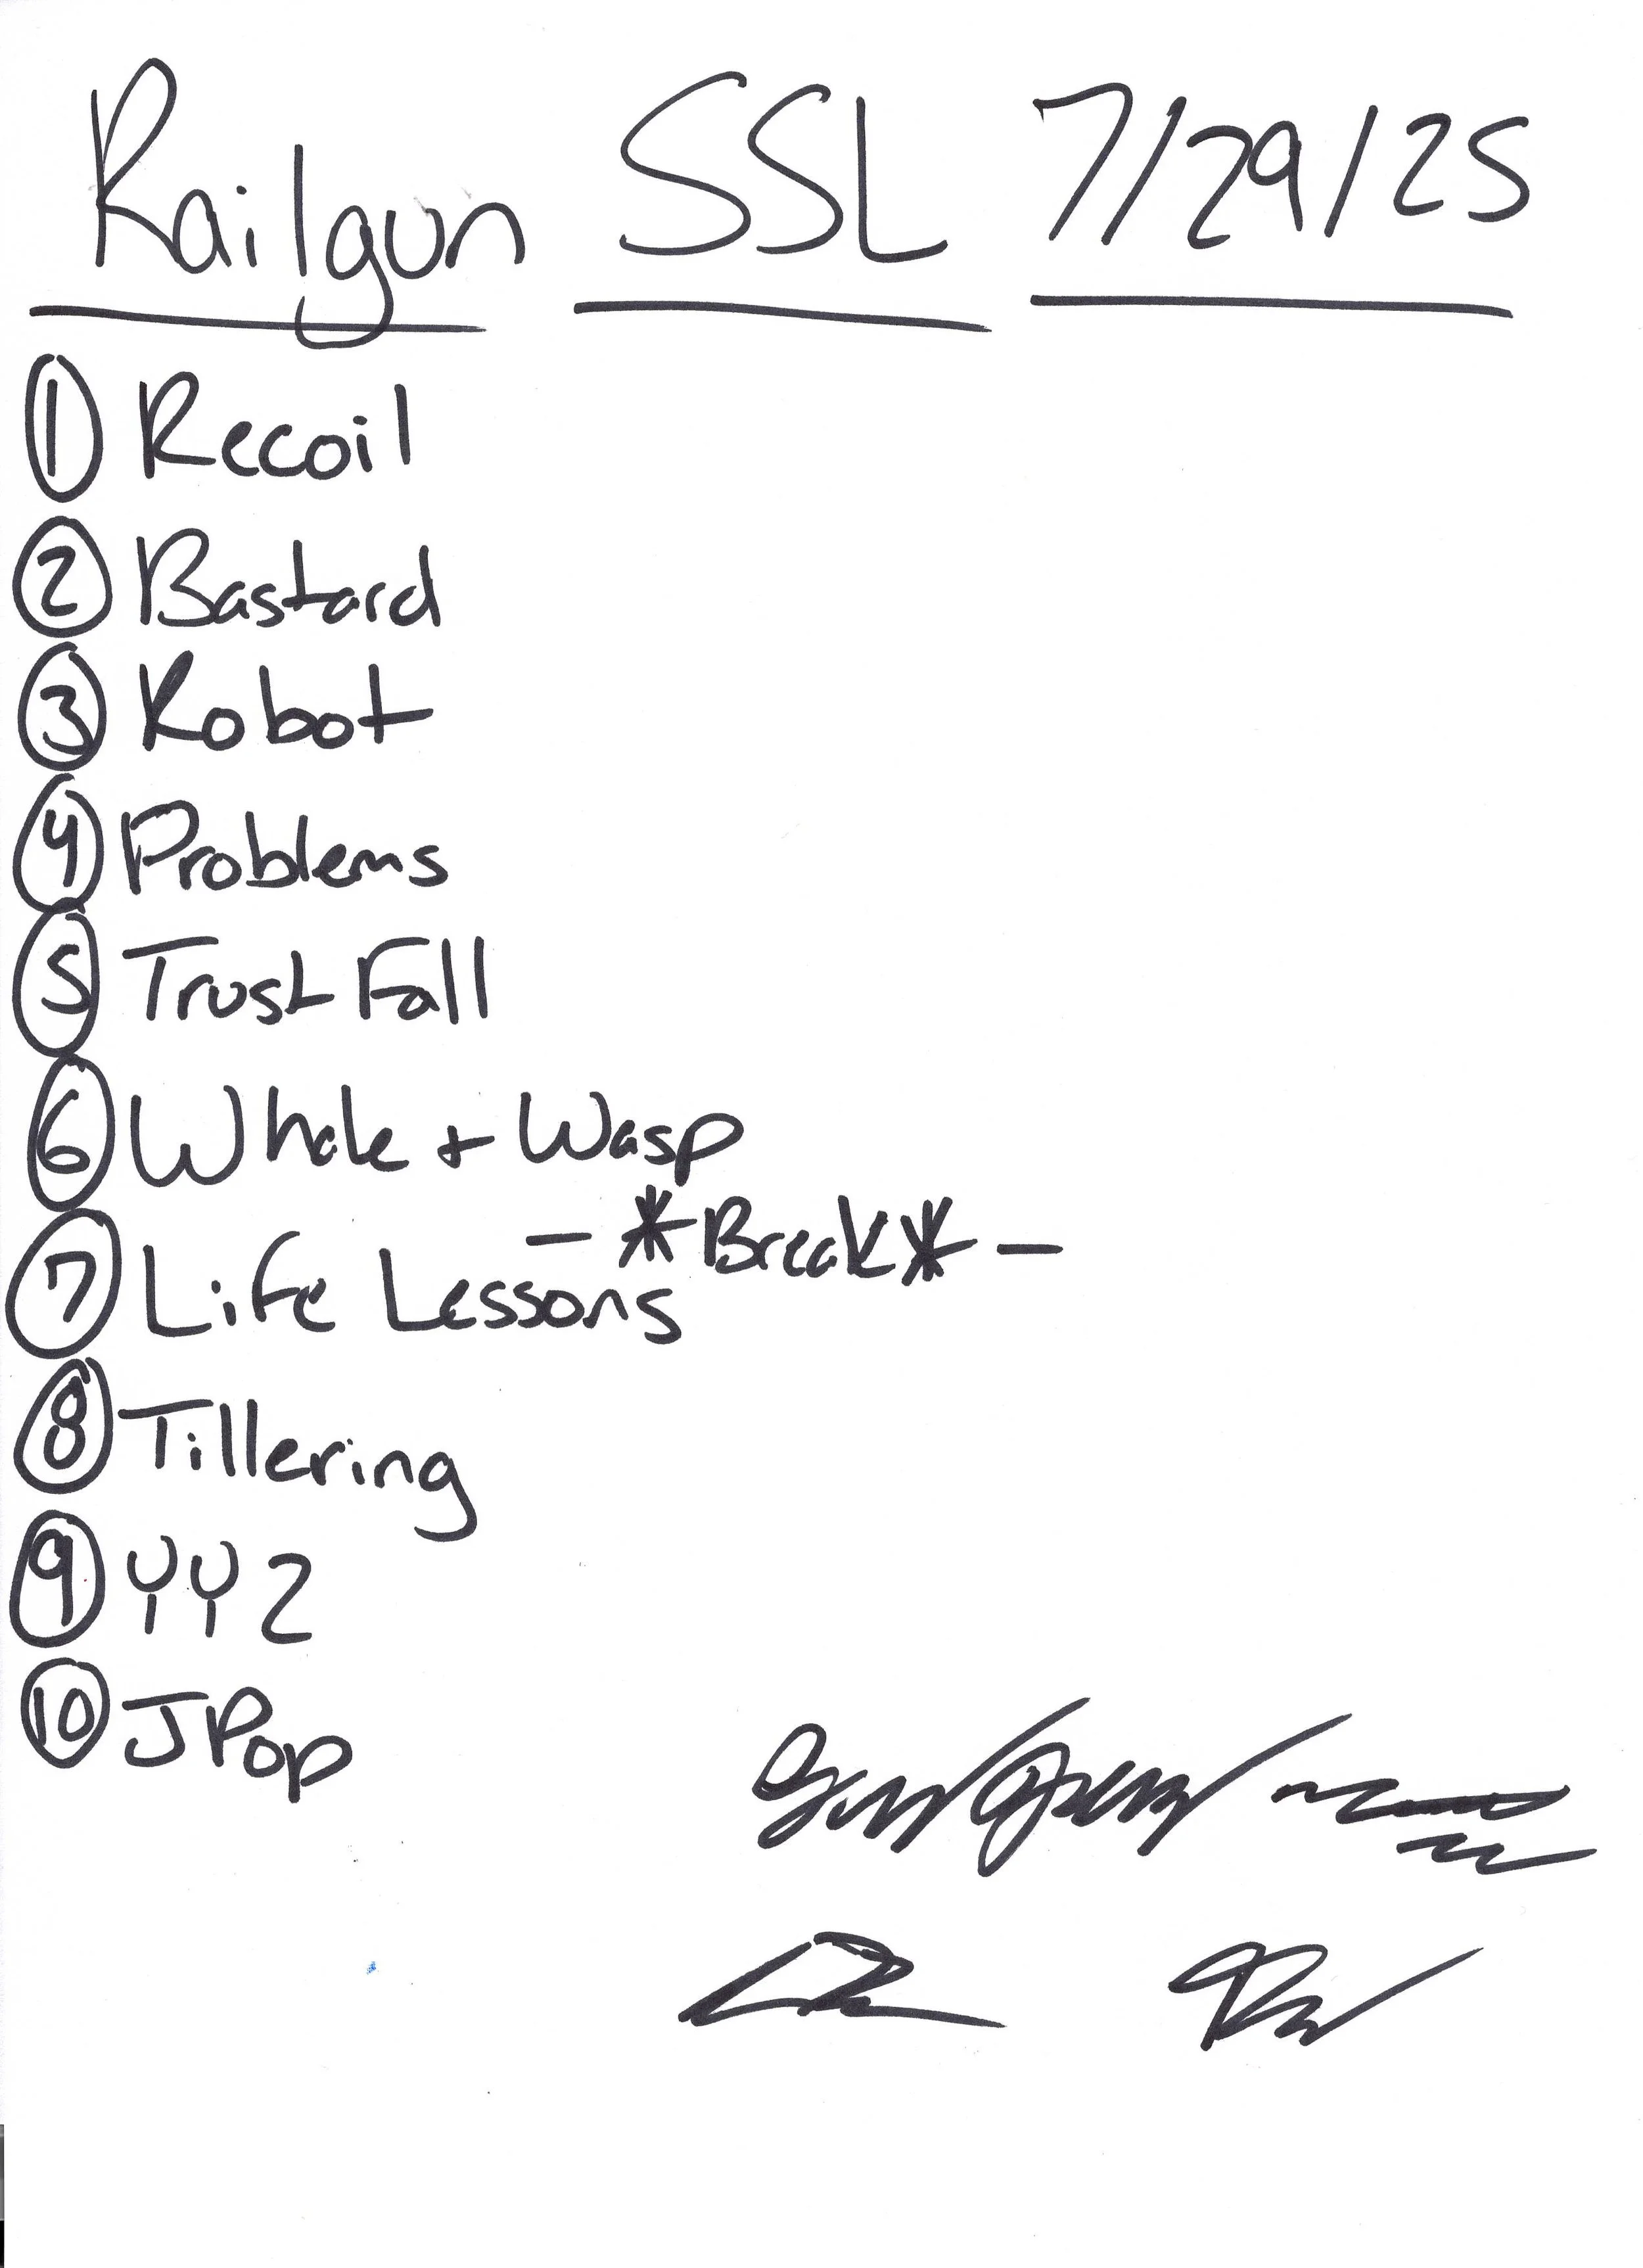 Railgun SSL 7/29/25
1 Recoil
2 Bastard
3 Robot
4 Problems
5 Trust Fall
6 Whale + Wasp
- *Break* -
7 Life Lessons
8 Tillering
9 YYZ
10 JPop